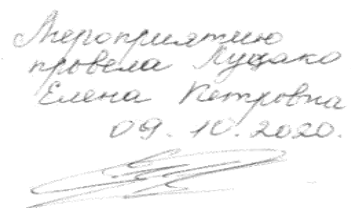 Мероприятию
провела Луцако
Елена Петровна
09.10.2020.